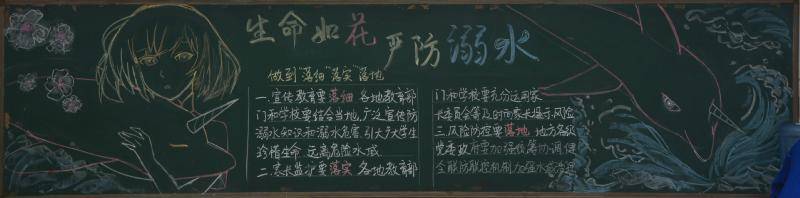 生命如花 严防溺水
做到"落细""落实"落地
一.宣传教育要落细 各地教育部
门和学校要结合当地,广泛宣传防
溺水知识和溺水危害,引大广大学生
珍惜生命,远离危险水域
二.家长监护要落实 各地教育部
门和学校要充分运用家
长委员会等及时向家长提示风险
三.风险防控要落地,地方各级
党委政府要加强统筹协调,健
全联防联控机制,加强水域治理